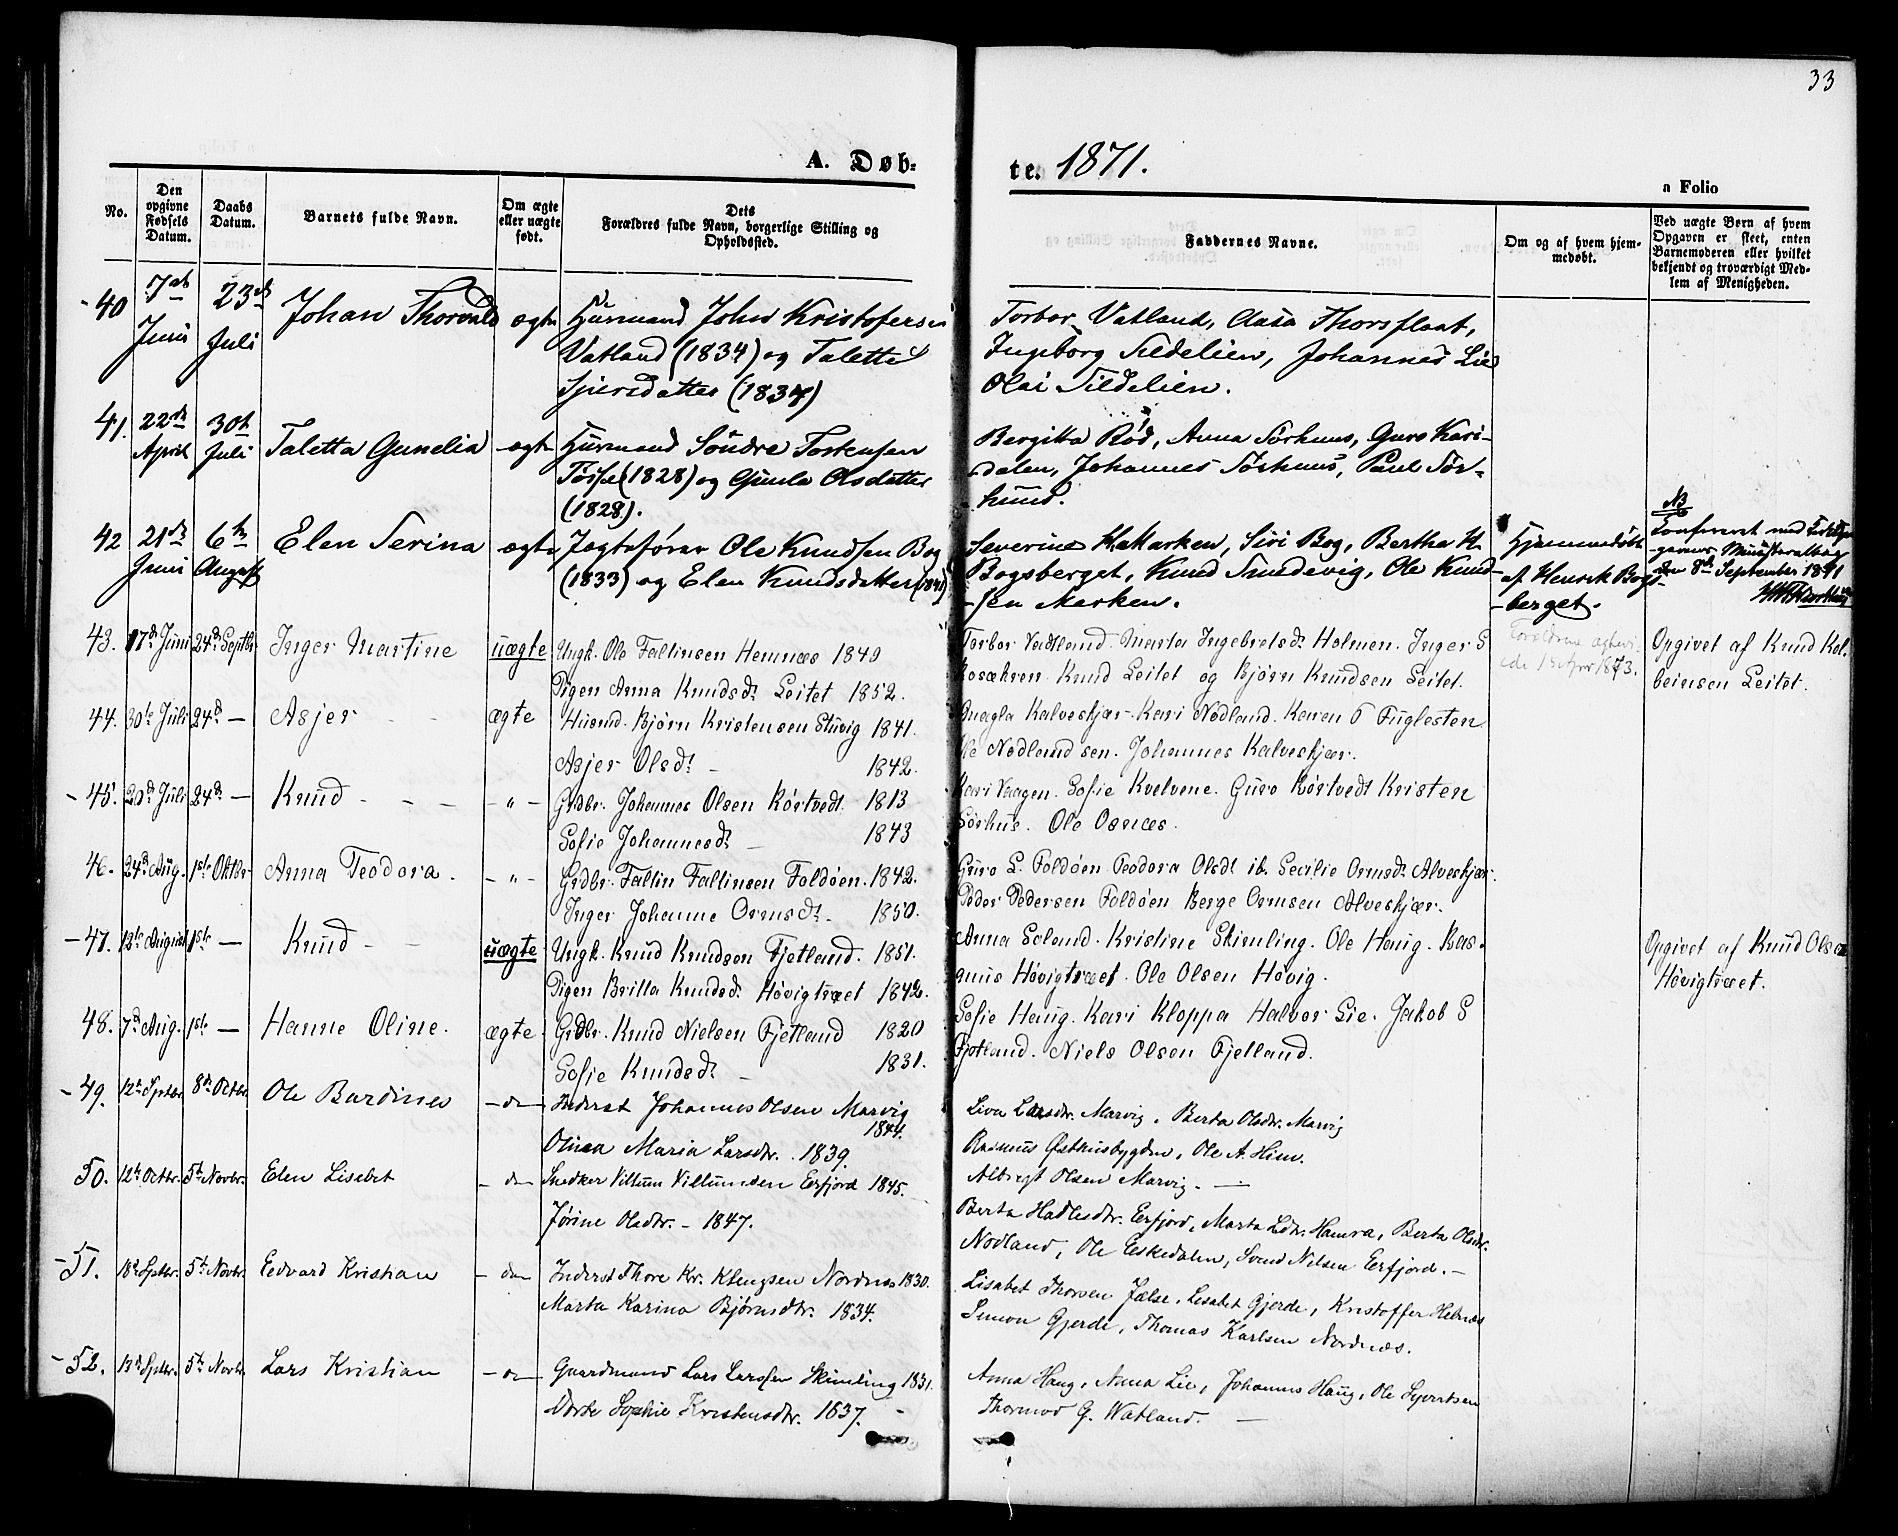 33
A. Døb-
te. 1871.
n Folio
No.
Den opgivne Fødsels Datum.
Daabs Datum.
Barnets fulde Navn.
Om ægte eller uægte født.
Dets Forældres fulde Navn, borgerlige Stilling og Opholdssted.
Faddernes Navne.
Om og af hvem hjem-medøbt.
Ved uægte Børn af hvem Opgaven er skeet, enten Barnemoderen eller hvilket bekjendt og troværdigt Med-lem af Menigheden.
40 7de Juni 23de Juli Johan Thorvald ægte Huusmand John Kristofersen
Vatland (1834) og Talette
Sjursdatter (1834)
Torbor Vatland, Aasa Thorsflaat,
Ingeborg Tildelien, Johannes Lie
Olai Tildelien.
41. 22de April 30te Juli Taletta Gunelia ægte Huusmand Søndre Tostensen
(1828) og Gunla Olsdatter
(1828).
Bergitta Rød, Anna Sørhuus, Guro Kari-
dalen, Johannes Sørhuus, Paul Sør-
huus.
42 21de Juni 6te August Elen Serina ægte Jægtefører Ole Knudsen Bog
(1833) og Elen Knudsdatter (1841)
Severine H. Marken, Siri Bog, Bertha H.
Bogsberget, Knud Smedevig, Ole Knud-
sen Marken.
Hjemmedøbt
af Henrik Bogs-
berget.
NB
Confereret med
Ministerialbog
den 8de September 1871
43. 17de Juni 24de Septbr Inger Martine uægte Ungk. Ole Fallinsen Hemnæs 1849
Pigen Anna Knudsdt Leitet 1852.
Torbor Vadland. Marta Ingebretsdt Holmen. Inger S
Rosæhren. Knud Leitet og Bjørn Knudsen Leitet.
Forældrene
1873.
Opgivet af Knud Kol-
beinsen Leitet.
44. 30te Juli 24de — Asjer ægte Husmd. Bjørn Kristensen Stuvig 1841.
Asjer Olsdt — 1842.
Kalveskjær. Kari Nødland. Karen T Fuglesten
Ole Nødland sen. Johannes Kalveskjær.
45. 20de Juli 24de — Knud — " — Grdbr. Johannes Olsen Rørtvedt 1813
Sofie Johannesdt — 1843
Kari Vaagen. Sofie Kvelvene. Guro Rørtvedt Kristen
Sørhus. Ole Osnæs.
46. 24de Aug. 1ste Oktbr Anna Teodora. — " — Grdbr. Fallin Fallinsen Foldøen. 1842.
Inger Johanne Ormsdt. — 1850.
Guro L. Foldøen Teodora Olsdt ib. Secilie Ormsdt Alveskjær.
Peder Pedersen Foldøen Berge Ormsen Alveskjær.
47. August 1ste — Knud uægte Ungk. Knud Knudsen Fjetland. 1851.
Pigen Britta Knudsdt Høvigtræet 1842.
Anna Soland. Kristine Skimling. Ole Haug. Ras-
mus Høvigtræet. Ole Olsen Høvig.
Opgivet af Knud Olsen
Høvigtræet.
48. 7de Aug. 1ste — Hanne Oline. ægte Grdbr. Knud Nielsen Fjetland 1820
Sofie Knudsdt — 1831.
Sofie Haug. Kari Kloppa Halvor Lie. Jakob S
Fjetland. Niels Olsen Fjetland.
49. 12te Septbr. 8de Octbr. Ole Bardines — do — Inderst Johannes Olsen Marvig
1844.
Olina Maria Larsdtr. 1839.
Liva Larsdtr. Marvig. Berta Olsdtr. Marvig
Rasmus Østhusbygden, Ole A. Hiim.
Albregt Olsen Marvig. —
50. 12te Octbr. 5te Novbr. Elen Lisabet — do — Snedker Villum Villumsen Erfjord 1845.
Jørine Olsdtr. — 1847.
Berta Hadlesdtr. Erfjord, Marta Ldtr. Hamra, Berta Olsdtr.
Nodland, Ole Eskedalen, Svend Nilsen Erfjord. —
51. 18de Septbr. 5te Novbr. Eedvard Kristian — do — Inderst Thore Kr. Klengsen Nordnes 1830.
Marta Karina Bjørnsdtr. 1834.
Lisabet Thorsen Jælse, Lisabet Gjerde, Kristoffer Hebnæs
Simon Gjerde, Thomas Karlsen Nordnæs.
52. 13de Septbr. 5te Novbr. Lars Kristian — do — Gaardmand Lars Larssen Skimling 1831.
Dorte Sophie Kristensdtr. 1837.
Anna Haug, Anna Lie, Johannes Haug, Ole Sjyrtsen
Thormod G. Watland. —